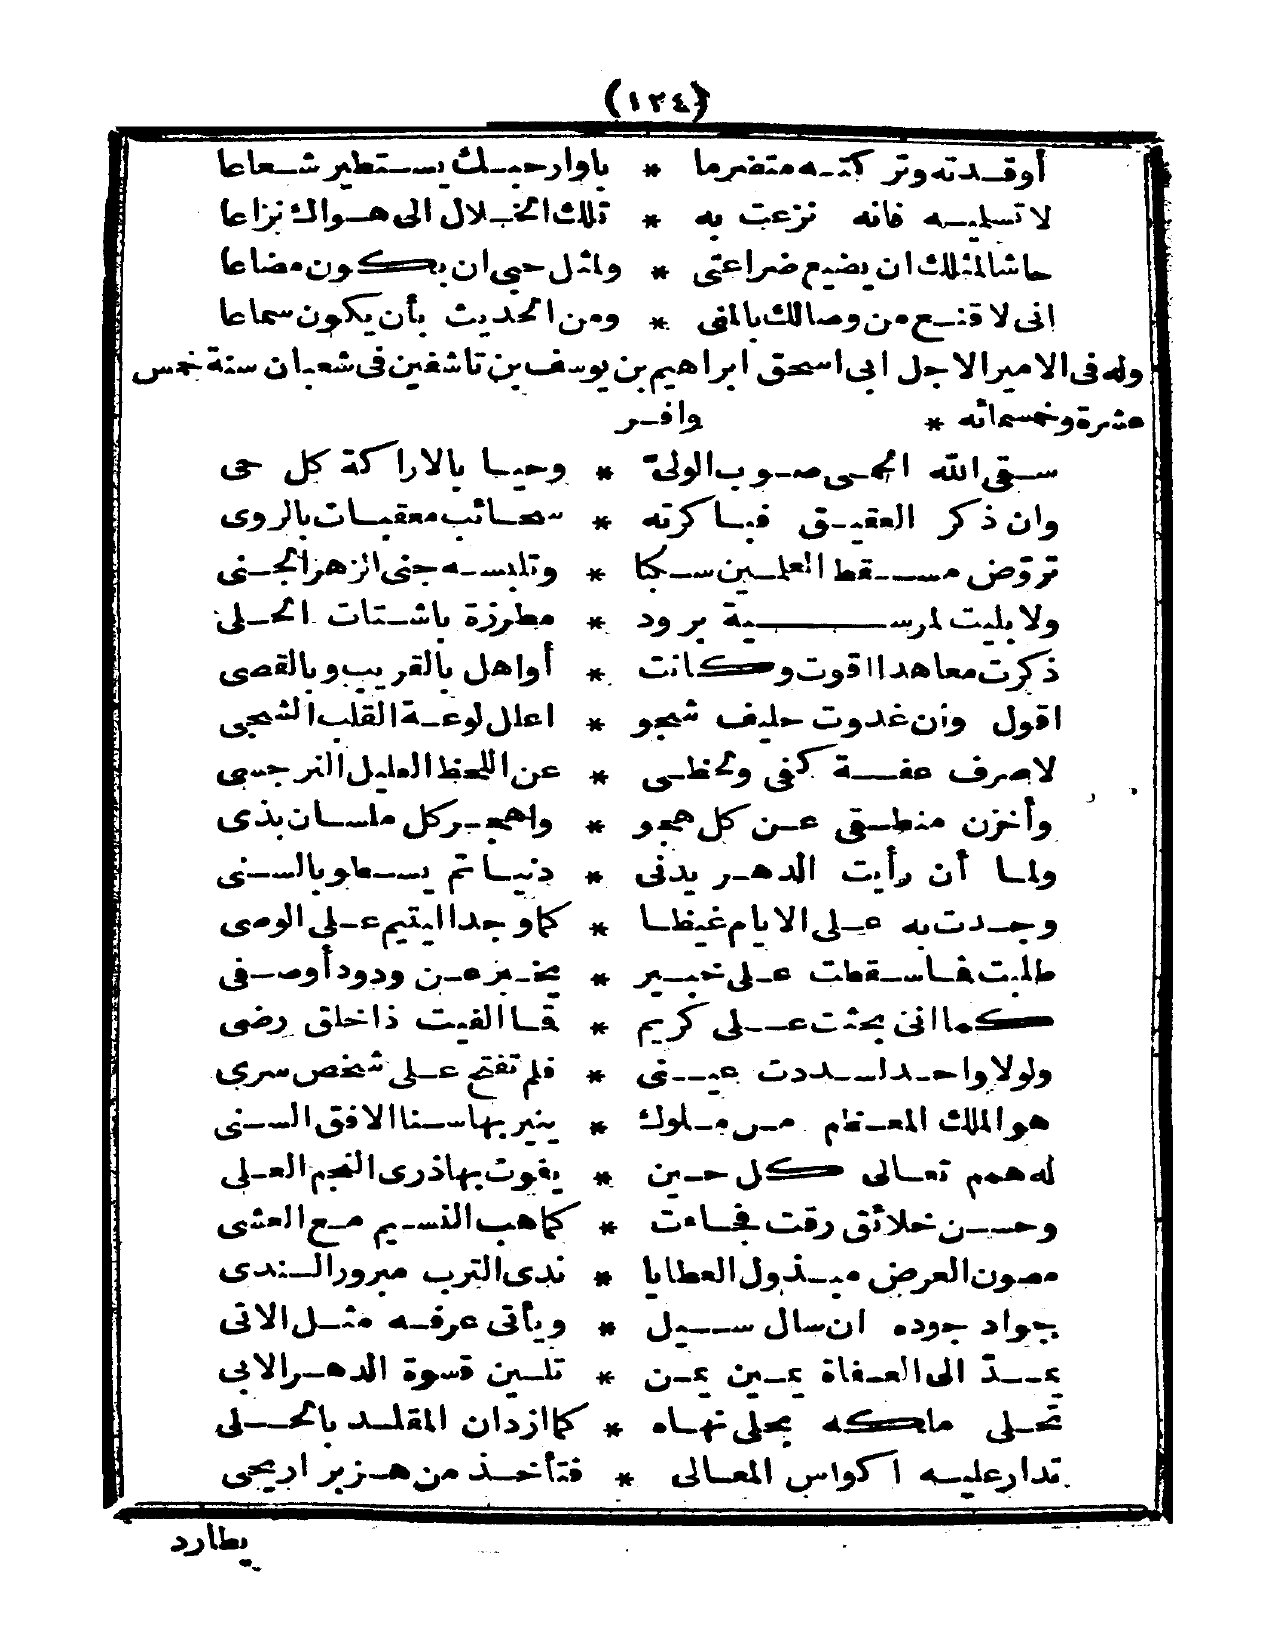 (١٣٤)
أوقدته وتركته متضرما * باوار حبك يستطير شعاعا
لا تسليه فانه نزعت به * تلك الخلال الى هواك نزاعا
حاشا لمثلك ان يضيع ضراعتى * ولمثل حبى ان يكون مضاعا
انى لا قنع من وصالك بالمنى * ومن الحديث بأن يكون سماعا
وله فى الامير الاجل ابى اسحق ابراهيم بن يوسف بن تاشفين فى شعبان سنة خمس
عشرة وخمسمائه * وافر
سقى الله الحمى صوب الولىّ * وحيا بالاراكة كل حى
وان ذكر العقيق فباكرته * سحائب معقبات بالروى
تروّض مسقط العلمين سكبا * وتلبسه جنى الزهر الجنى
ولا بليت لمرسية برود * مطرزة باشتات الحلى
ذكرت معاهدا اقوت وكانت * أواهل بالقريب وبالقصى
اقول وان غدوت حليف شجو * اعلل لوعة القلب الشجى
لاصرف عفة كفى ولحظى * عن اللحظ العليل النرجسى
وأخزن منطقى عن كل هجو * واهجر كل ملسان بذى
ولما أن رأيت الدهر يدنى * دنيا ثم يسطو بالسنى
وجدت به على الايام غيظا * كما وجد اليتيم على الوصى
طلبت فما سقطت على خبير * يخبر عن ودود أو صفى
كما انى بحثت على كريم * فما الفيت ذا خلق رضى
ولولا واحد لسددت عينى * فلم تفتح على شخص سرى
هو الملك المعظم من ملوك * ينير بها سنا الافق السنى
له همم تعالى كل حين * يفوت بها ذرى النجم العلى
وحسن خلائق رقت فجاءت * كما هب النسيم مع العشى
مصون العرض مبذول العطايا * ندى الترب مبرور الندى
جواد جوده ان سال سيل * ويأتى عرفه مثل الاتى
يمدّ الى العفاة يمين يمن * تلين قسوة الدهر الابى
تحلى ملكه بحلى نهاه * كما ازدان المقلد بالحلى
تدار عليه اكواس المعالى * فتأخذ من هزبر اريحى
يطارد